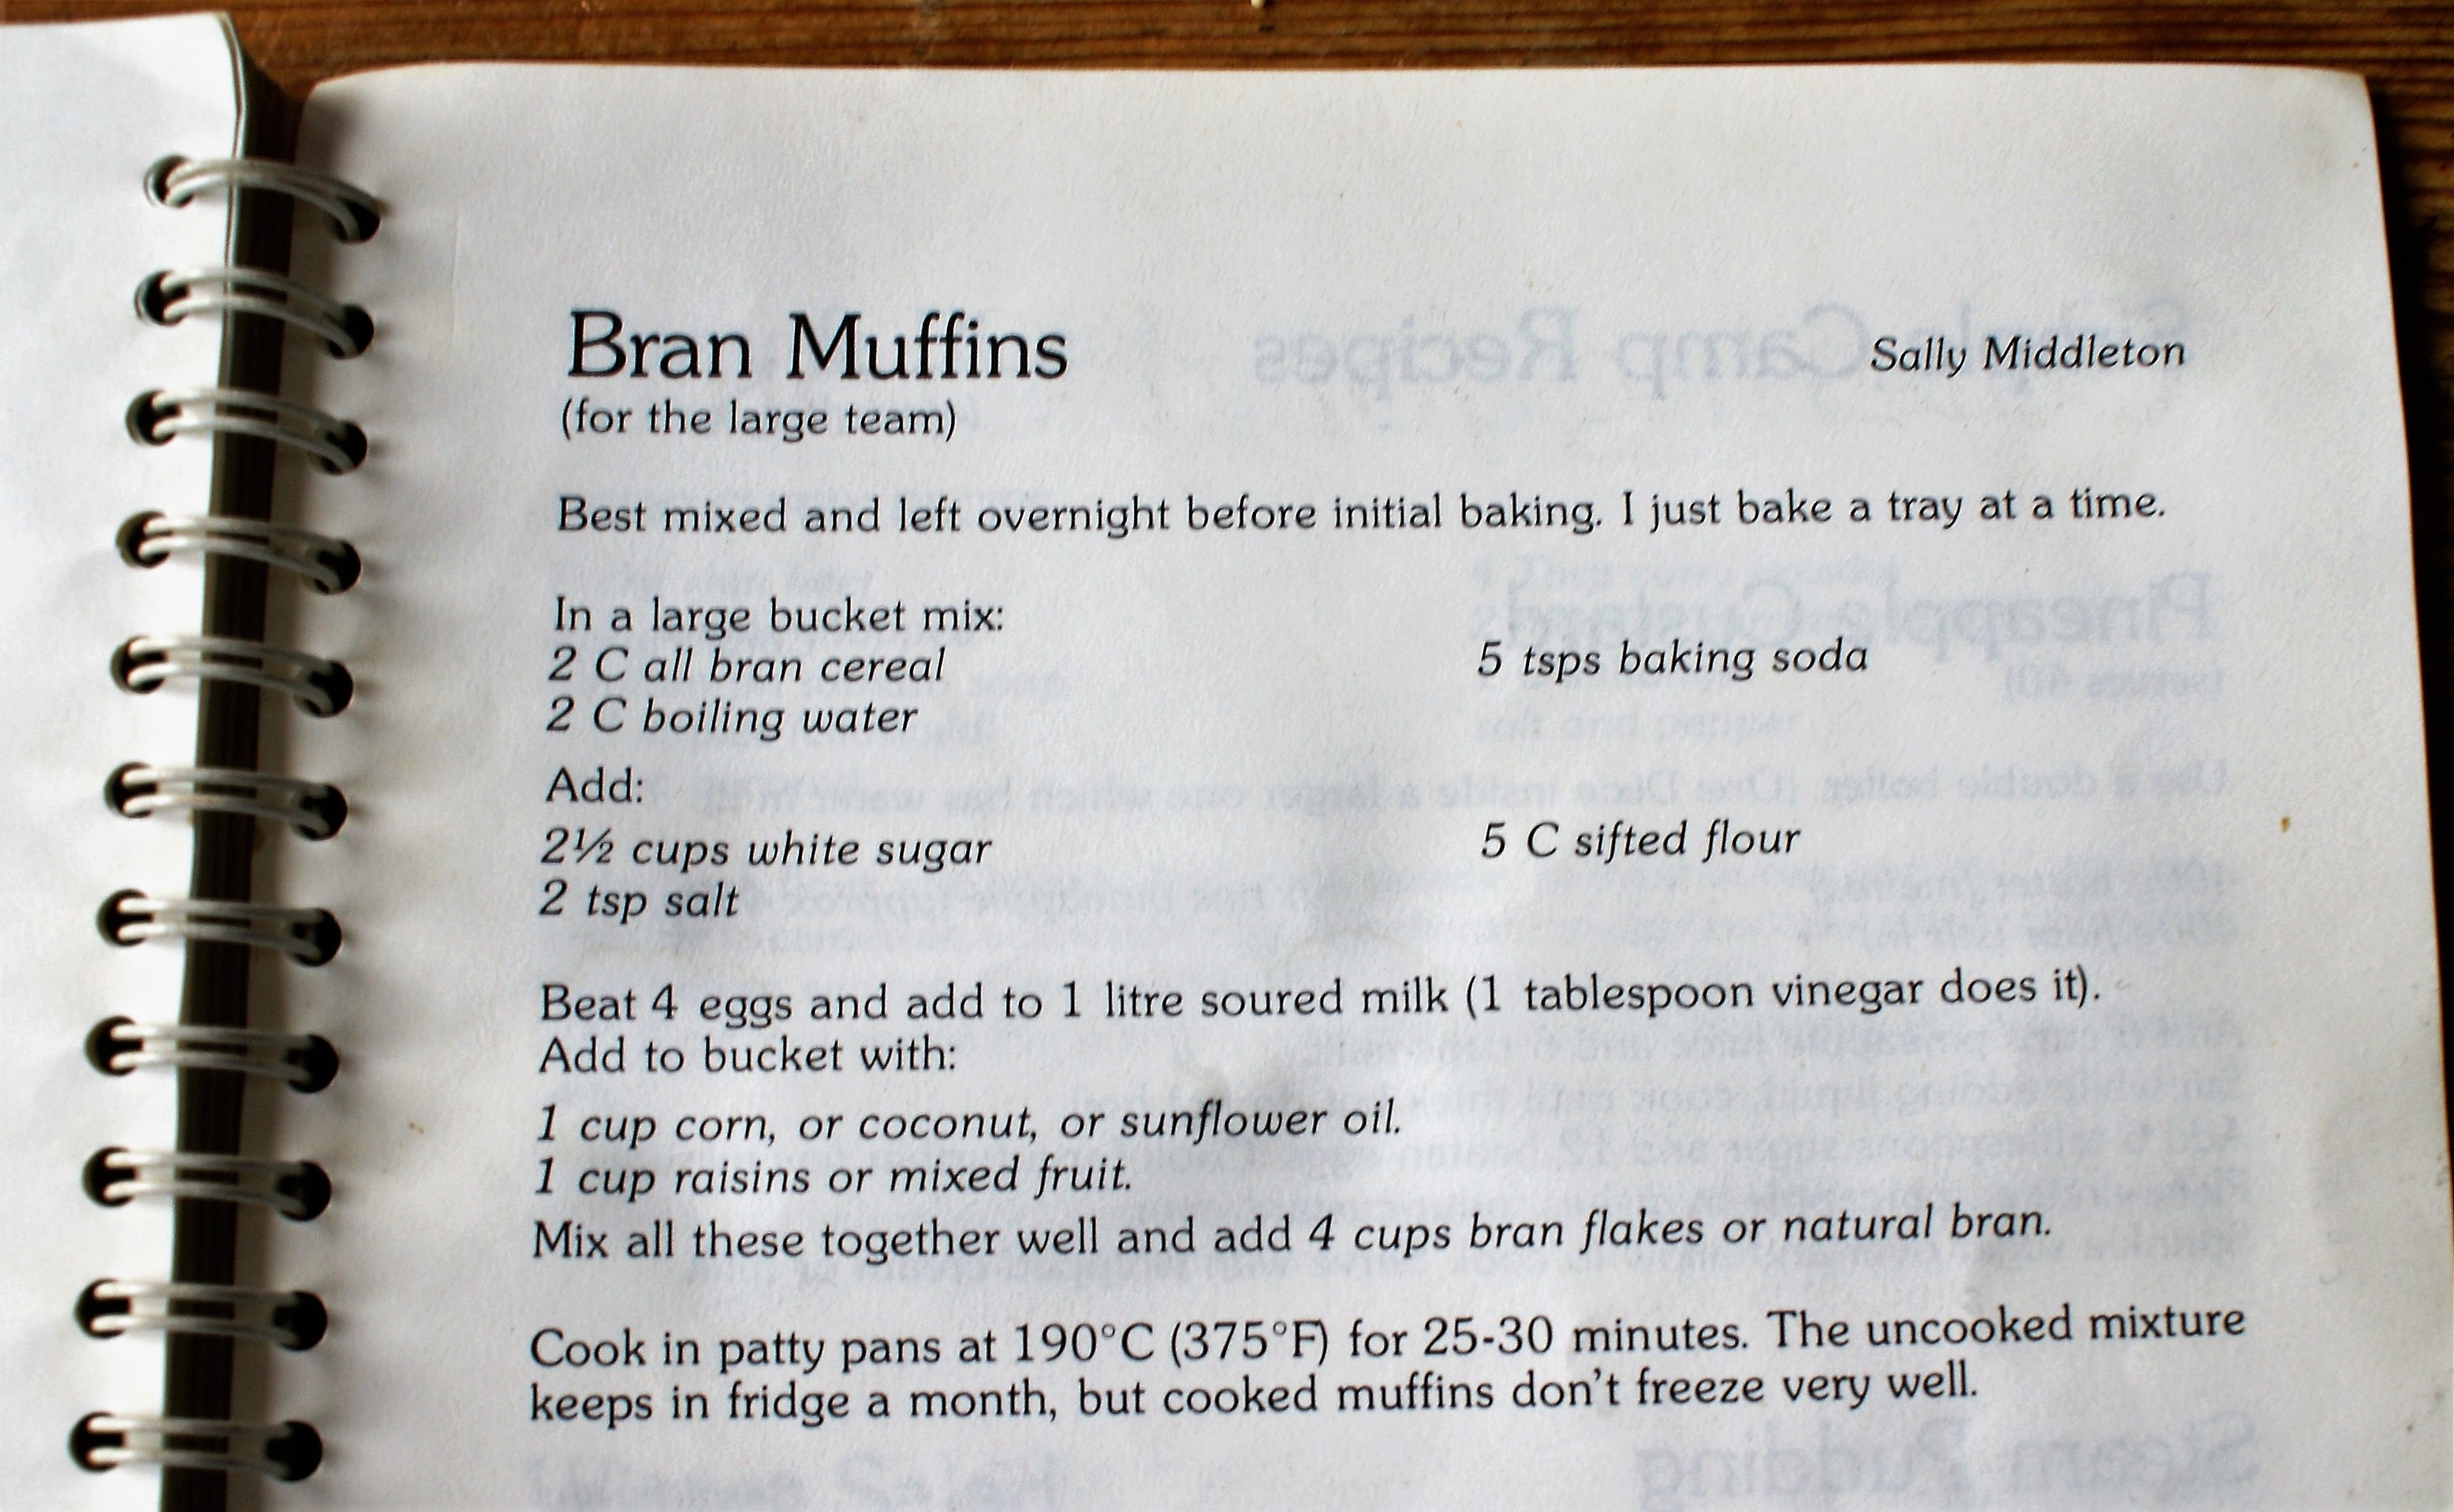 Bran Muffins
Sally Middleton
(for the large team)
Best mixed and left overnight before initial baking. I just bake a tray at a time.
In a large bucket mix:
2 C all bran cereal
5 tsps baking soda
2 C boiling water
Add:
2½ cups white sugar
5 C sifted flour
2 tsp salt
Beat 4 eggs and add to 1 litre soured milk (1 tablespoon vinegar does it).
Add to bucket with:
1 cup corn, or coconut, or sunflower oil.
1 cup raisins or mixed fruit.
Mix all these together well and add 4 cups bran flakes or natural bran.
Cook in patty pans at 190°C (375°F) for 25-30 minutes. The uncooked mixture
keeps in fridge a month, but cooked muffins don't freeze very well.